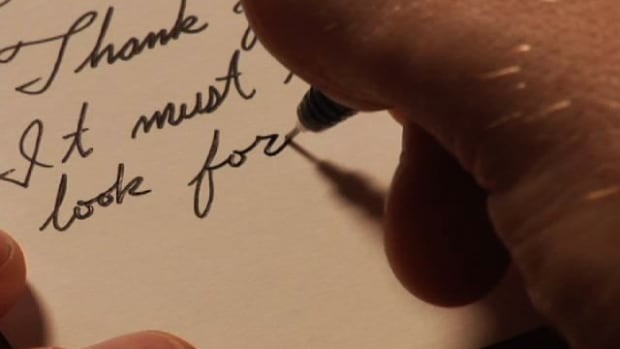 Thank
It must
look for